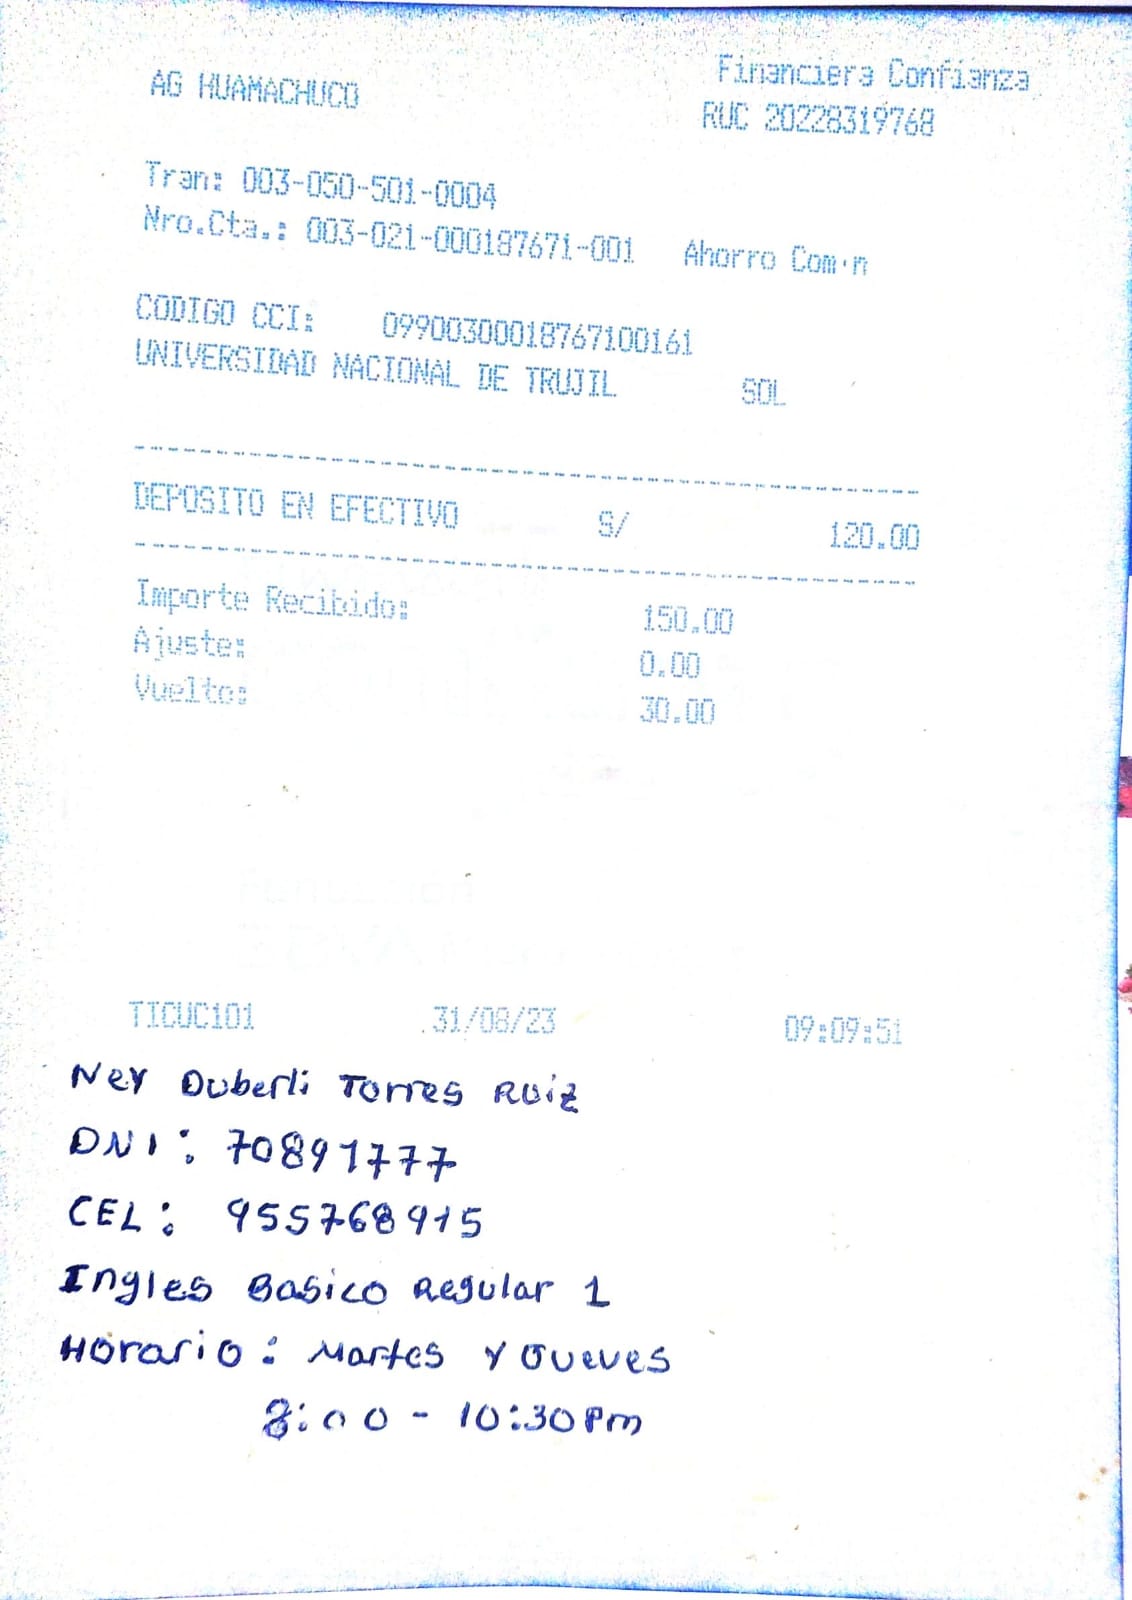 AG HUAMACHUCO Financiera Confianza
RUC 20228319768
Tran: 003-050-501-0004
Nro.Cta.: 003-021-000187671-001 Ahorro Com·n
CODIGO CCI: 09900300018767100161
UNIVERSIDAD NACIONAL DE TRUJIL SOL
DEPOSITO EN EFECTIVO S/ 120.00
Importe Recibido: 150.00
Ajuste: 0.00
Vuelto: 30.00
TICUC101 31/08/23 09:09:51
Ney Duberli Torres Ruiz
DNI: 70891777
CEL: 955768915
Ingles Basico Regular 1
Horario: Martes y Jueves
8:00 - 10:30 Pm